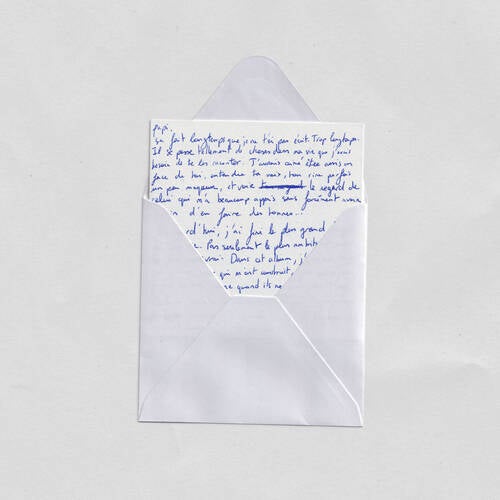 papi,
ça fait longtemps que je ne t'ai pas écrit. Trop longtemps.
Il se passe tellement de choses dans ma vie que j'aurai
besoin de te les raconter. J'aurais aimé être assis en
face de toi, entendre ta voix, ton rire parfois
un peu moqueur, et voir le regard de
celui qui m'a beaucoup appris sans forcément avoir
d'en faire des tonnes...
j'ai fini le plus grand
Pas seulement le plus ambit
vrai. Dans cet album, j'
qui m'ont construit,
quand ils ne